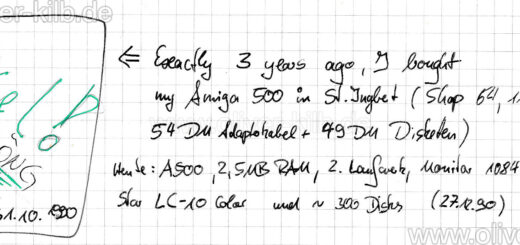 er-kilb.de
⇐ Exactly 3 years ago, I bought
my Amiga 500 in St. Ingbert (Shop 64, 1
54 DM Adapterkabel + 49 DM Disketten)
Heute: A500, 2,5MB RAM, 2. Laufwerk, Monitor 1084
Star LC-10 Color und ~ 300 Disks (27.12.90)
31.10.1990
www.olive